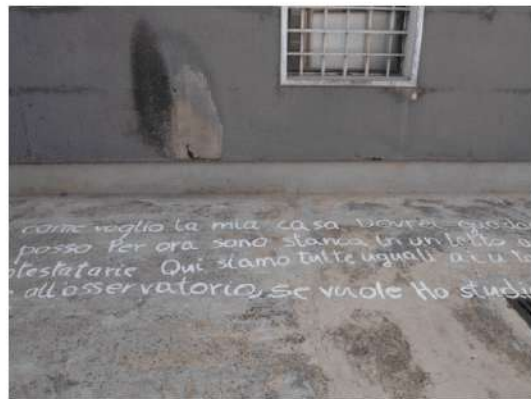 come voglio la mia casa Dovrei guada
posso Per ora sono stanca in un letto
otestatarie Qui siamo tutte uguali a
e all'osservatorio, se vuole Ho studi